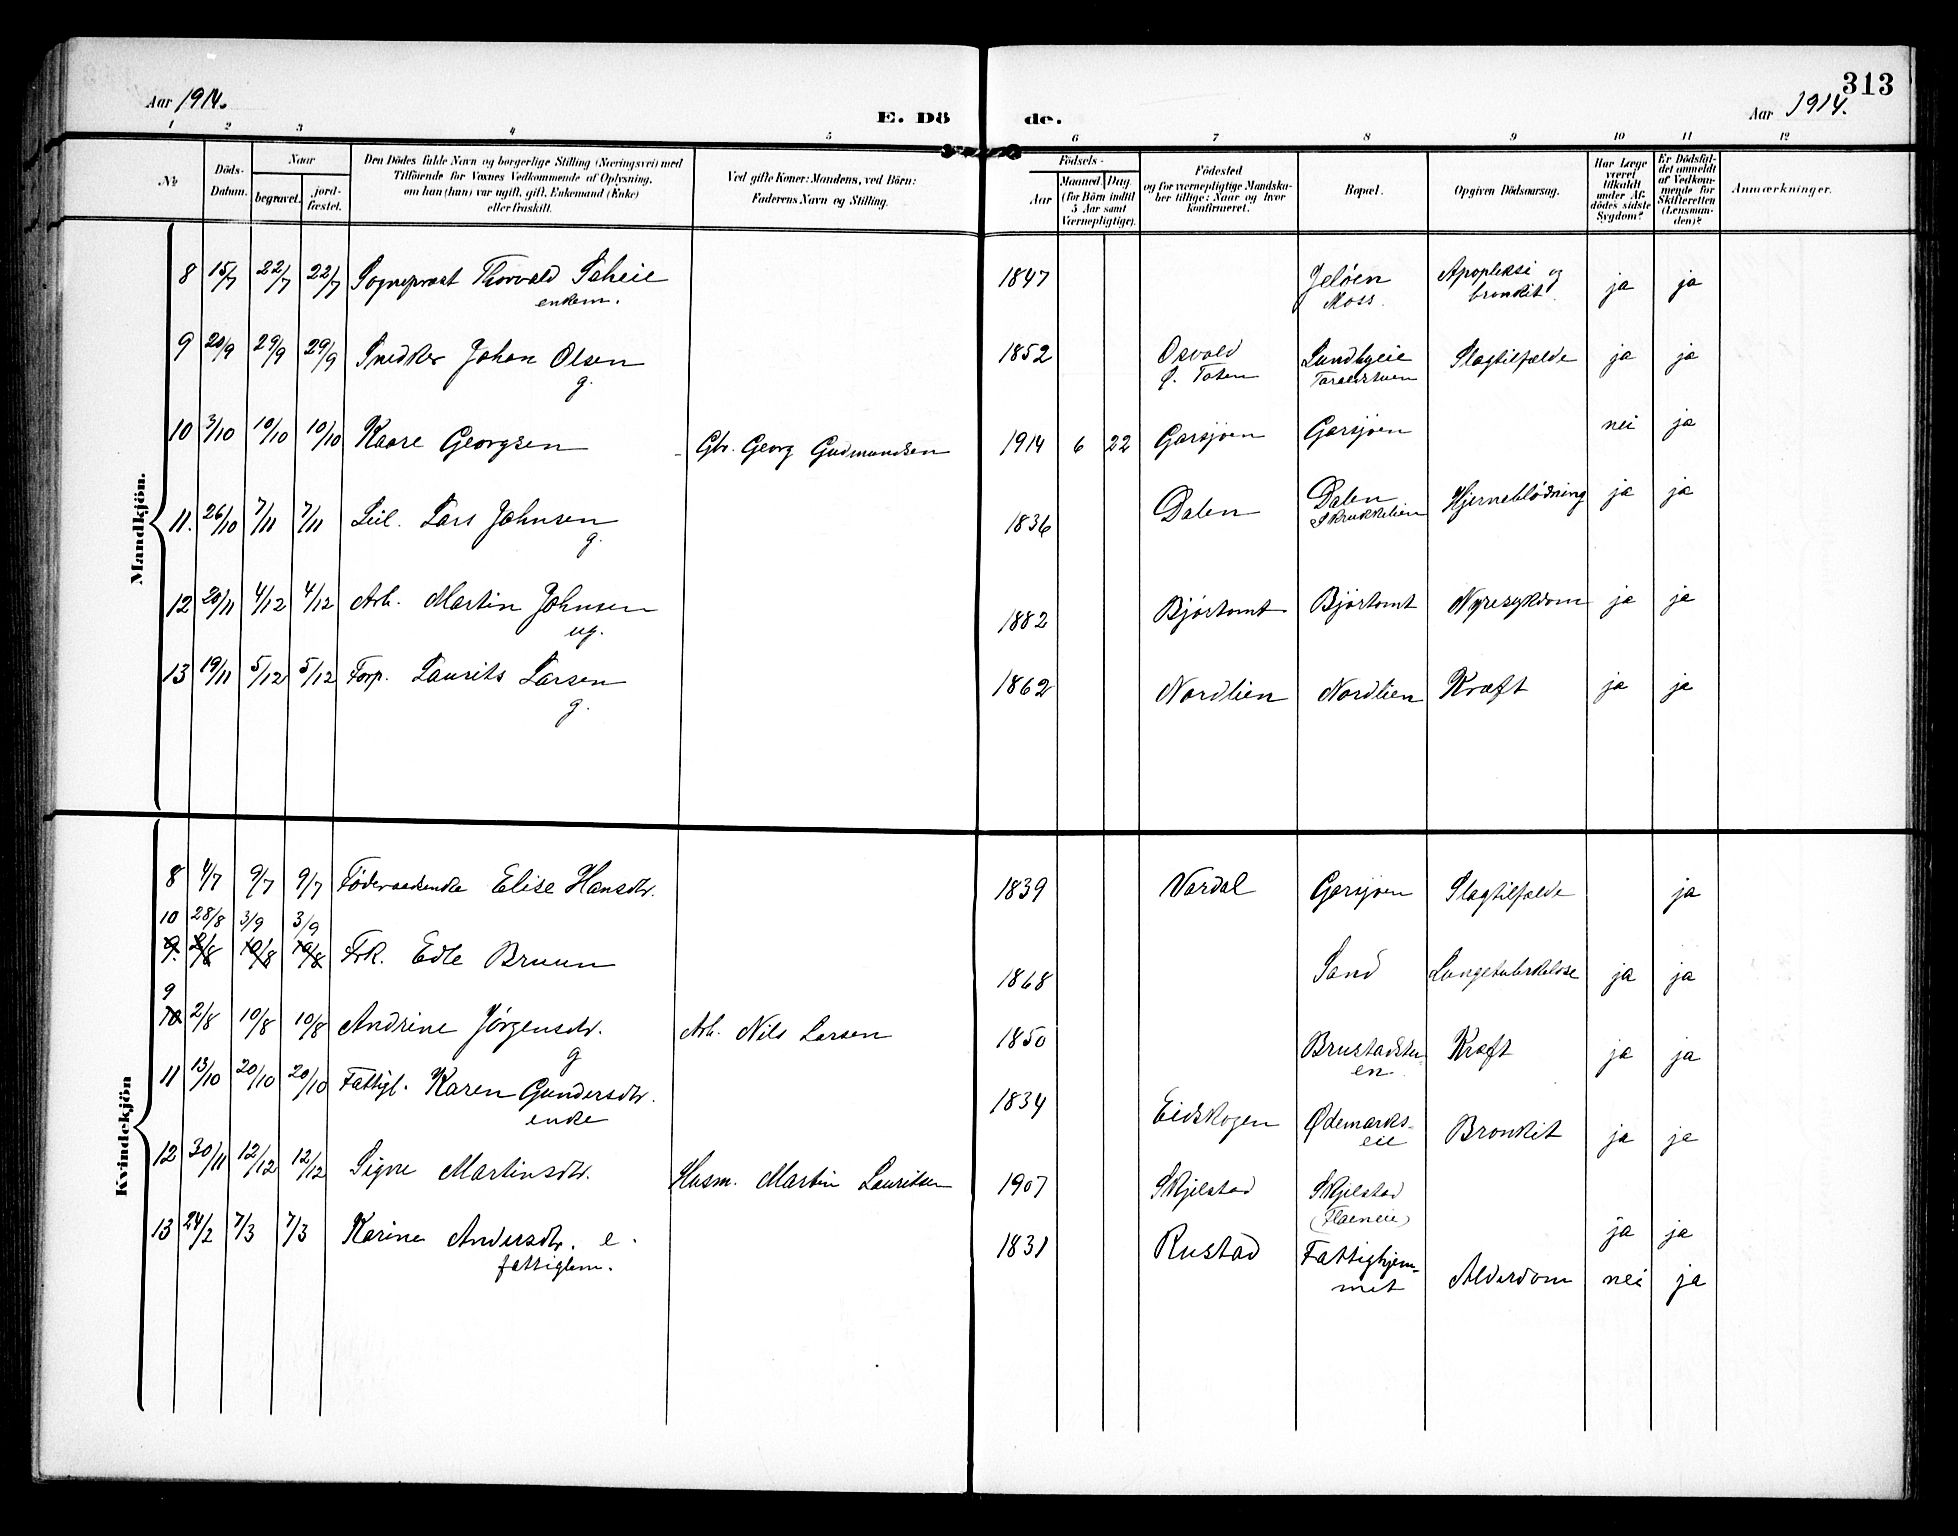 313
Aar 1914.
E. Dö
de.
Aar 1914.
1 2 3 4 5 6 7 8 9 10 11 12
No
Döds-
Datum.
Naar
begravet.
jord-
fæstet.
Den Dödes fulde Navn og borgerlige Stilling (Næringsvei) med
Tilföiende for Voxnes Vedkommende af Oplysning,
om han (hun) var ugift, gift, Enkemand (Enke)
eller fraskilt.
Ved gifte Koner: Mandens, ved Börn:
Faderens Navn og Stilling.
Födsels-
Aar
Maaned Dag
(for Börn indtil
5 Aar samt
Værnepligtige).
Födested
og for værnepligtige Mandska-
ber tillige: Naar og hvor
konfirmeret.
Bopæl.
Opgiven Dödsaarsag.
Har Læge
været
tilkaldt
under Af-
dödes sidste
Sygdom?
Er Dödsfal-
det anmeldt
af Vedkom-
mende for
Skifteretten
(Lensman-
den)?
Anmærkninger.
Mandkjön.
8 15/7 22/7 22/7 Sogneprest Thorvald Scheie 1847 Jeløen Apopleksi og ja ja
enkem. Moss. bronkit.
9 20/9 29/9 29/9 Snedker Johan Olsen 1852 Osvold Sundbyeie Slagtilfælde ja ja
g. Ø. Toten
10 3/10 10/10 10/10 Kaare Georgsen Gbr. Georg Gudmundsen 1914 6 22 Garsjøen Garsjøen nei ja
11. 26/10 7/11 7/11 Leil. Lars Johnsen 1836 Dalen Dalen Hjerneblödning ja ja
g. Skrukkelien
12 20/11 4/12 4/12 Arb. Martin Johnsen 1882 Bjørtomt Bjørtomt Nyresykdom ja ja
ug.
13 19/11 5/12 5/12 Forp. Laurits Larsen 1862 Nordlien Nordlien Kræft ja ja
g.
Kvindekjön
8 4/7 9/7 9/7 Föderaadsenke Elise Hansdtr. 1839 Vardal Garsjøen Slagtilfælde ja
10 28/8 3/9 3/9
9. 2/8 10/8 10/8 Frk. Edle Bruun 1868 Sand Lungetuberkulose ja ja
9
10 2/8 10/8 10/8 Andrine Jørgensdtr. Arb. Nils Larsen 1850 Brustadstu- Kræft ja ja
g en.
11 13/10 20/10 20/10 Fattigl. Karen Gundersdtr. 1834 Eidskogen Ødemarks- Bronkit ja ja
enke eie
12 30/11 12/12 12/12 Signe Martinsdtr. Husm. Martin Lauritsen 1907 Skjelstad Skjelstad ja ja
(Flaeneie)
13 24/2 7/3 7/3 Karine Andersdtr. e. 1831 Rustad Fattighjem- Alderdom nei ja
fattiglem. met